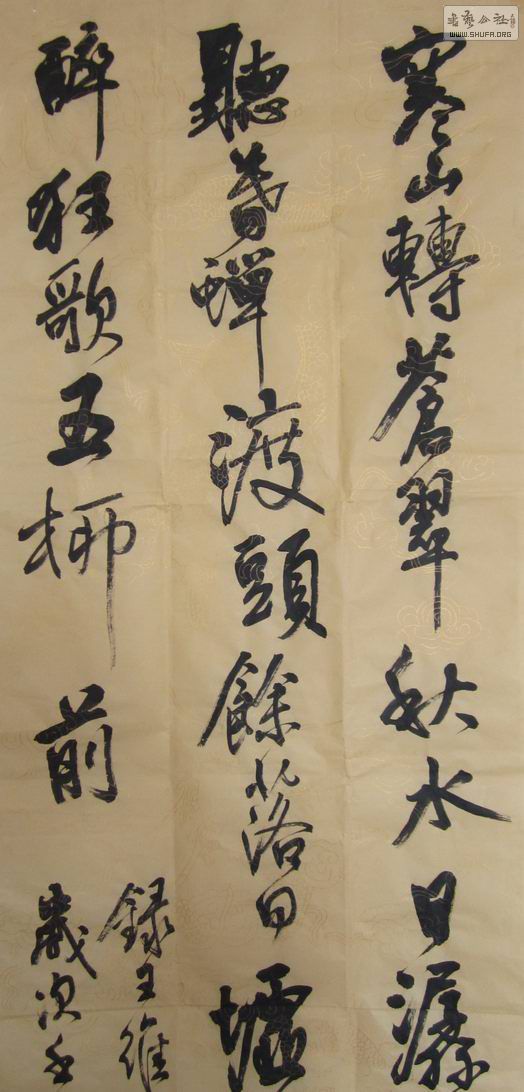 書藝公社
WWW.SHUFA.ORG
寒山轉蒼翠秋水日潺
聽暮蟬渡頭餘落日墟
醉狂歌五柳前
錄王維
歲次